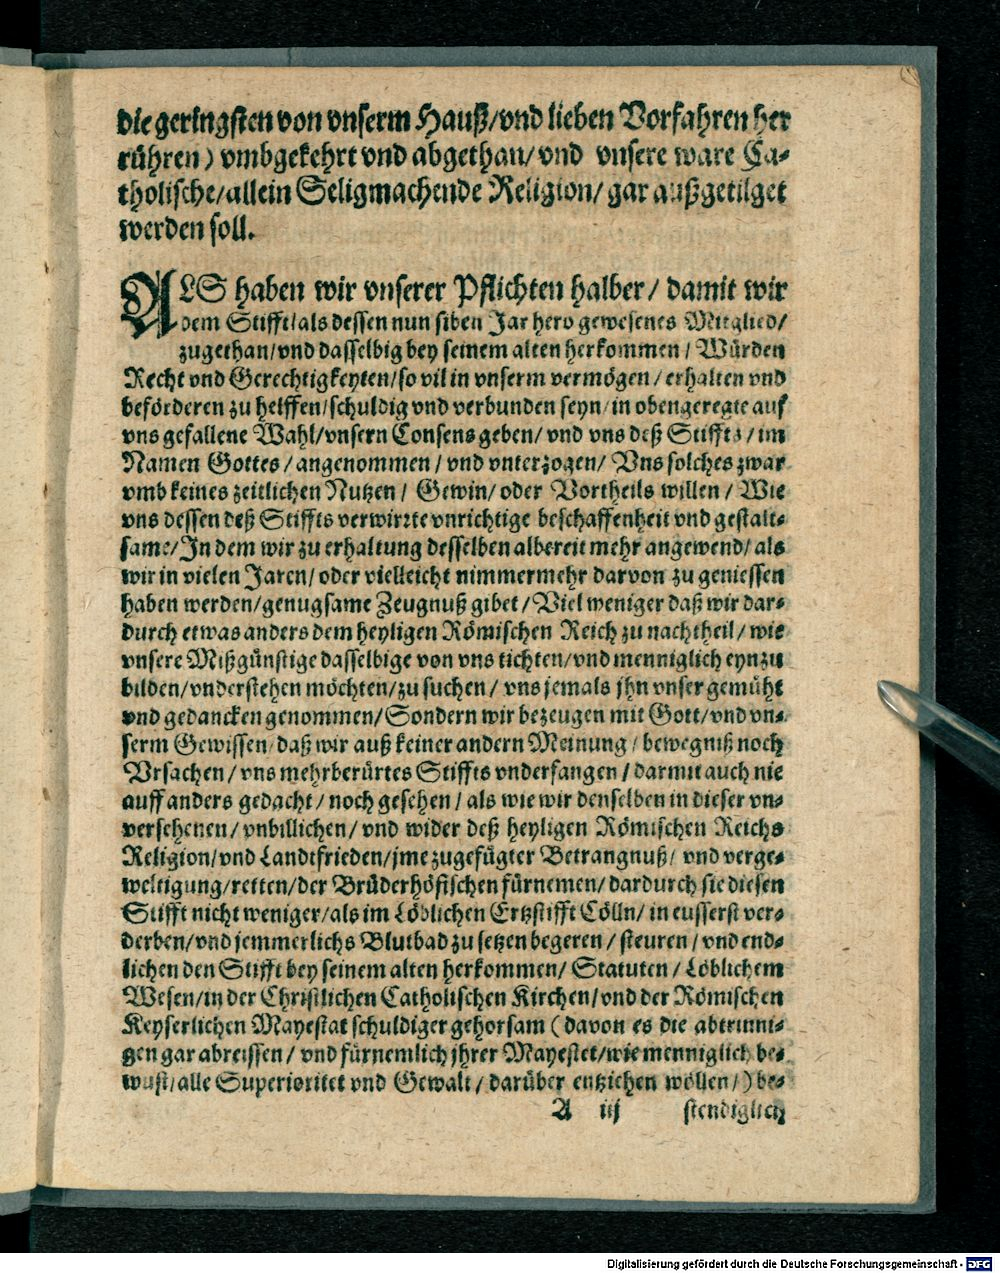 die geringsten von vnserm Hauß/vnd lieben Vorfahren her
rühren) vmbgekehrt vnd abgethan/vnd vnsere ware Ca-
tholische/allein Seligmachende Religion/ gar außgetilget
werden soll.
ALS haben wir vnserer Pflichten halber/ damit wir
dem Stifft/als dessen nun siben Jar hero gewesenes Mitglied/
zugethan/vnd dasselbig bey seinem alten herkommen/ Würden
Recht vnd Gerechtigkeyten/so vil in vnserm vermögen/ erhalten vnd
beförderen zu helffen/schuldig vnd verbunden seyn/in obengeregte auf
vns gefallene Wahl/vnsern Consens geben/ vnd vns deß Stiffts/im
Namen Gottes/angenommen/vnd vnterzogen/ Vns solches zwar
vmb keines zeitlichen Nutzen/ Gewin/ oder Vortheils willen/ Wie
vns dessen deß Stiffts verwirrte vnrichtige beschaffenheit vnd gestalt-
same/In dem wir zu erhaltung desselben albereit mehr angewend/ als
wir in vielen Jaren/ oder vielleicht nimmermehr darvon zu geniessen
haben werden/genugsame Zeugnuß gibet/Viel weniger daß wir dar-
durch etwas anders dem heyligen Römischen Reich zu nachtheil/ wie
vnsere Mißgünstige dasselbige von vns tichten/vnd menniglich eynzu
bilden/vnderstehen möchten/zu suchen/ vns jemals jhn vnser gemüht
vnd gedancken genommen/Sondern wir bezeugen mit Gott/vnd vn-
serm Gewissen/daß wir auß keiner andern Meinung/bewegniß noch
Vrsachen/vns mehrberürtes Stiffts vnderfangen/darmit auch nie
auff anders gedacht/noch gesehen/als wie wir denselben in dieser vn-
versehenen/vnbillichen/vnd wider deß heyligen Römischen Reichs
Religion/vnd Landtfrieden/jme zugefügter Betrangnuß/ vnd verge-
weltigung/retten/der Brüderhöfischen fürnemen/dardurch sie diesen
Stifft nicht weniger/als im Löblichen Ertzstifft Cölln/in eusserst ver-
derben/vnd jemmerlichs Blutbad zu setzen begeren/steuren/vnd end-
lichen den Stifft bey seinem alten herkommen/ Statuten/ Löblichem
Wesen/in der Christlichen Catholischen Kirchen/vnd der Römischen
Keyserlichen Mayestat schuldiger gehorsam (davon es die abtrinni-
gen gar abreissen/ vnd fürnemlich jhrer Mayestet/wie menniglich be-
wust/alle Superioritet vnd Gewalt/darüber entziehen wöllen/) be-
A iij stendiglich
Digitalisierung gefördert durch die Deutsche Forschungsgemeinschaft - DFG